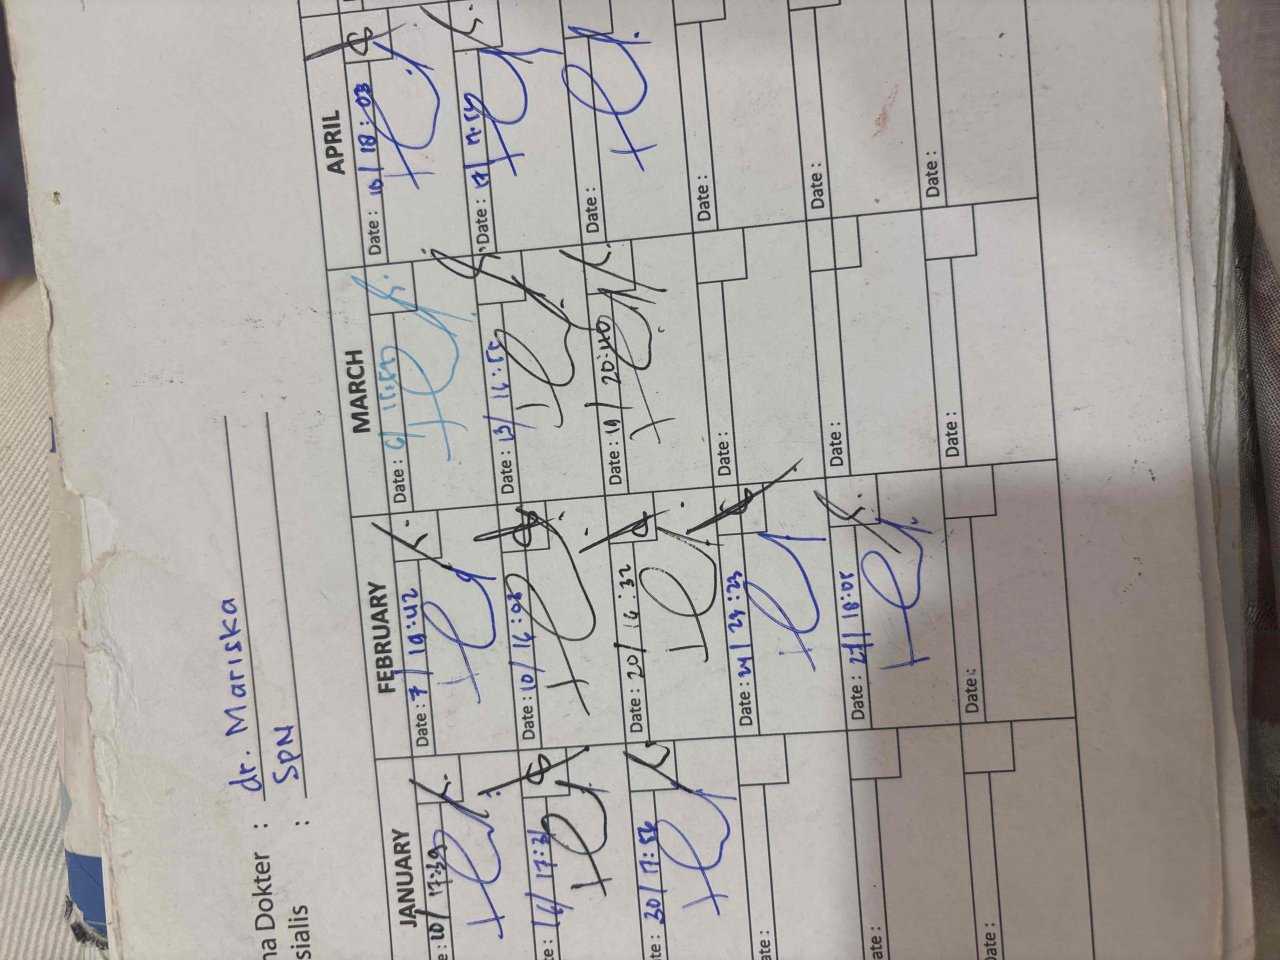 na Dokter : dr. Mariska
sialis : SPN
JANUARY FEBRUARY MARCH APRIL
te: 10/ 17:39 Date: 7/ 19:42 Date: 6/ Date: 10/ 18:03
te: 16/ 17:31 Date: 10/ 16:08 Date: 13/ 16:55 Date: 17/ 17.55
te: 30/ 17:56 Date: 20/ 16:32 Date: 19/ 20:40 Date:
te: Date: 24/ 23:23 Date: Date:
ate: Date: 27/ 18:05 Date: Date:
ate: Date: Date: Date: